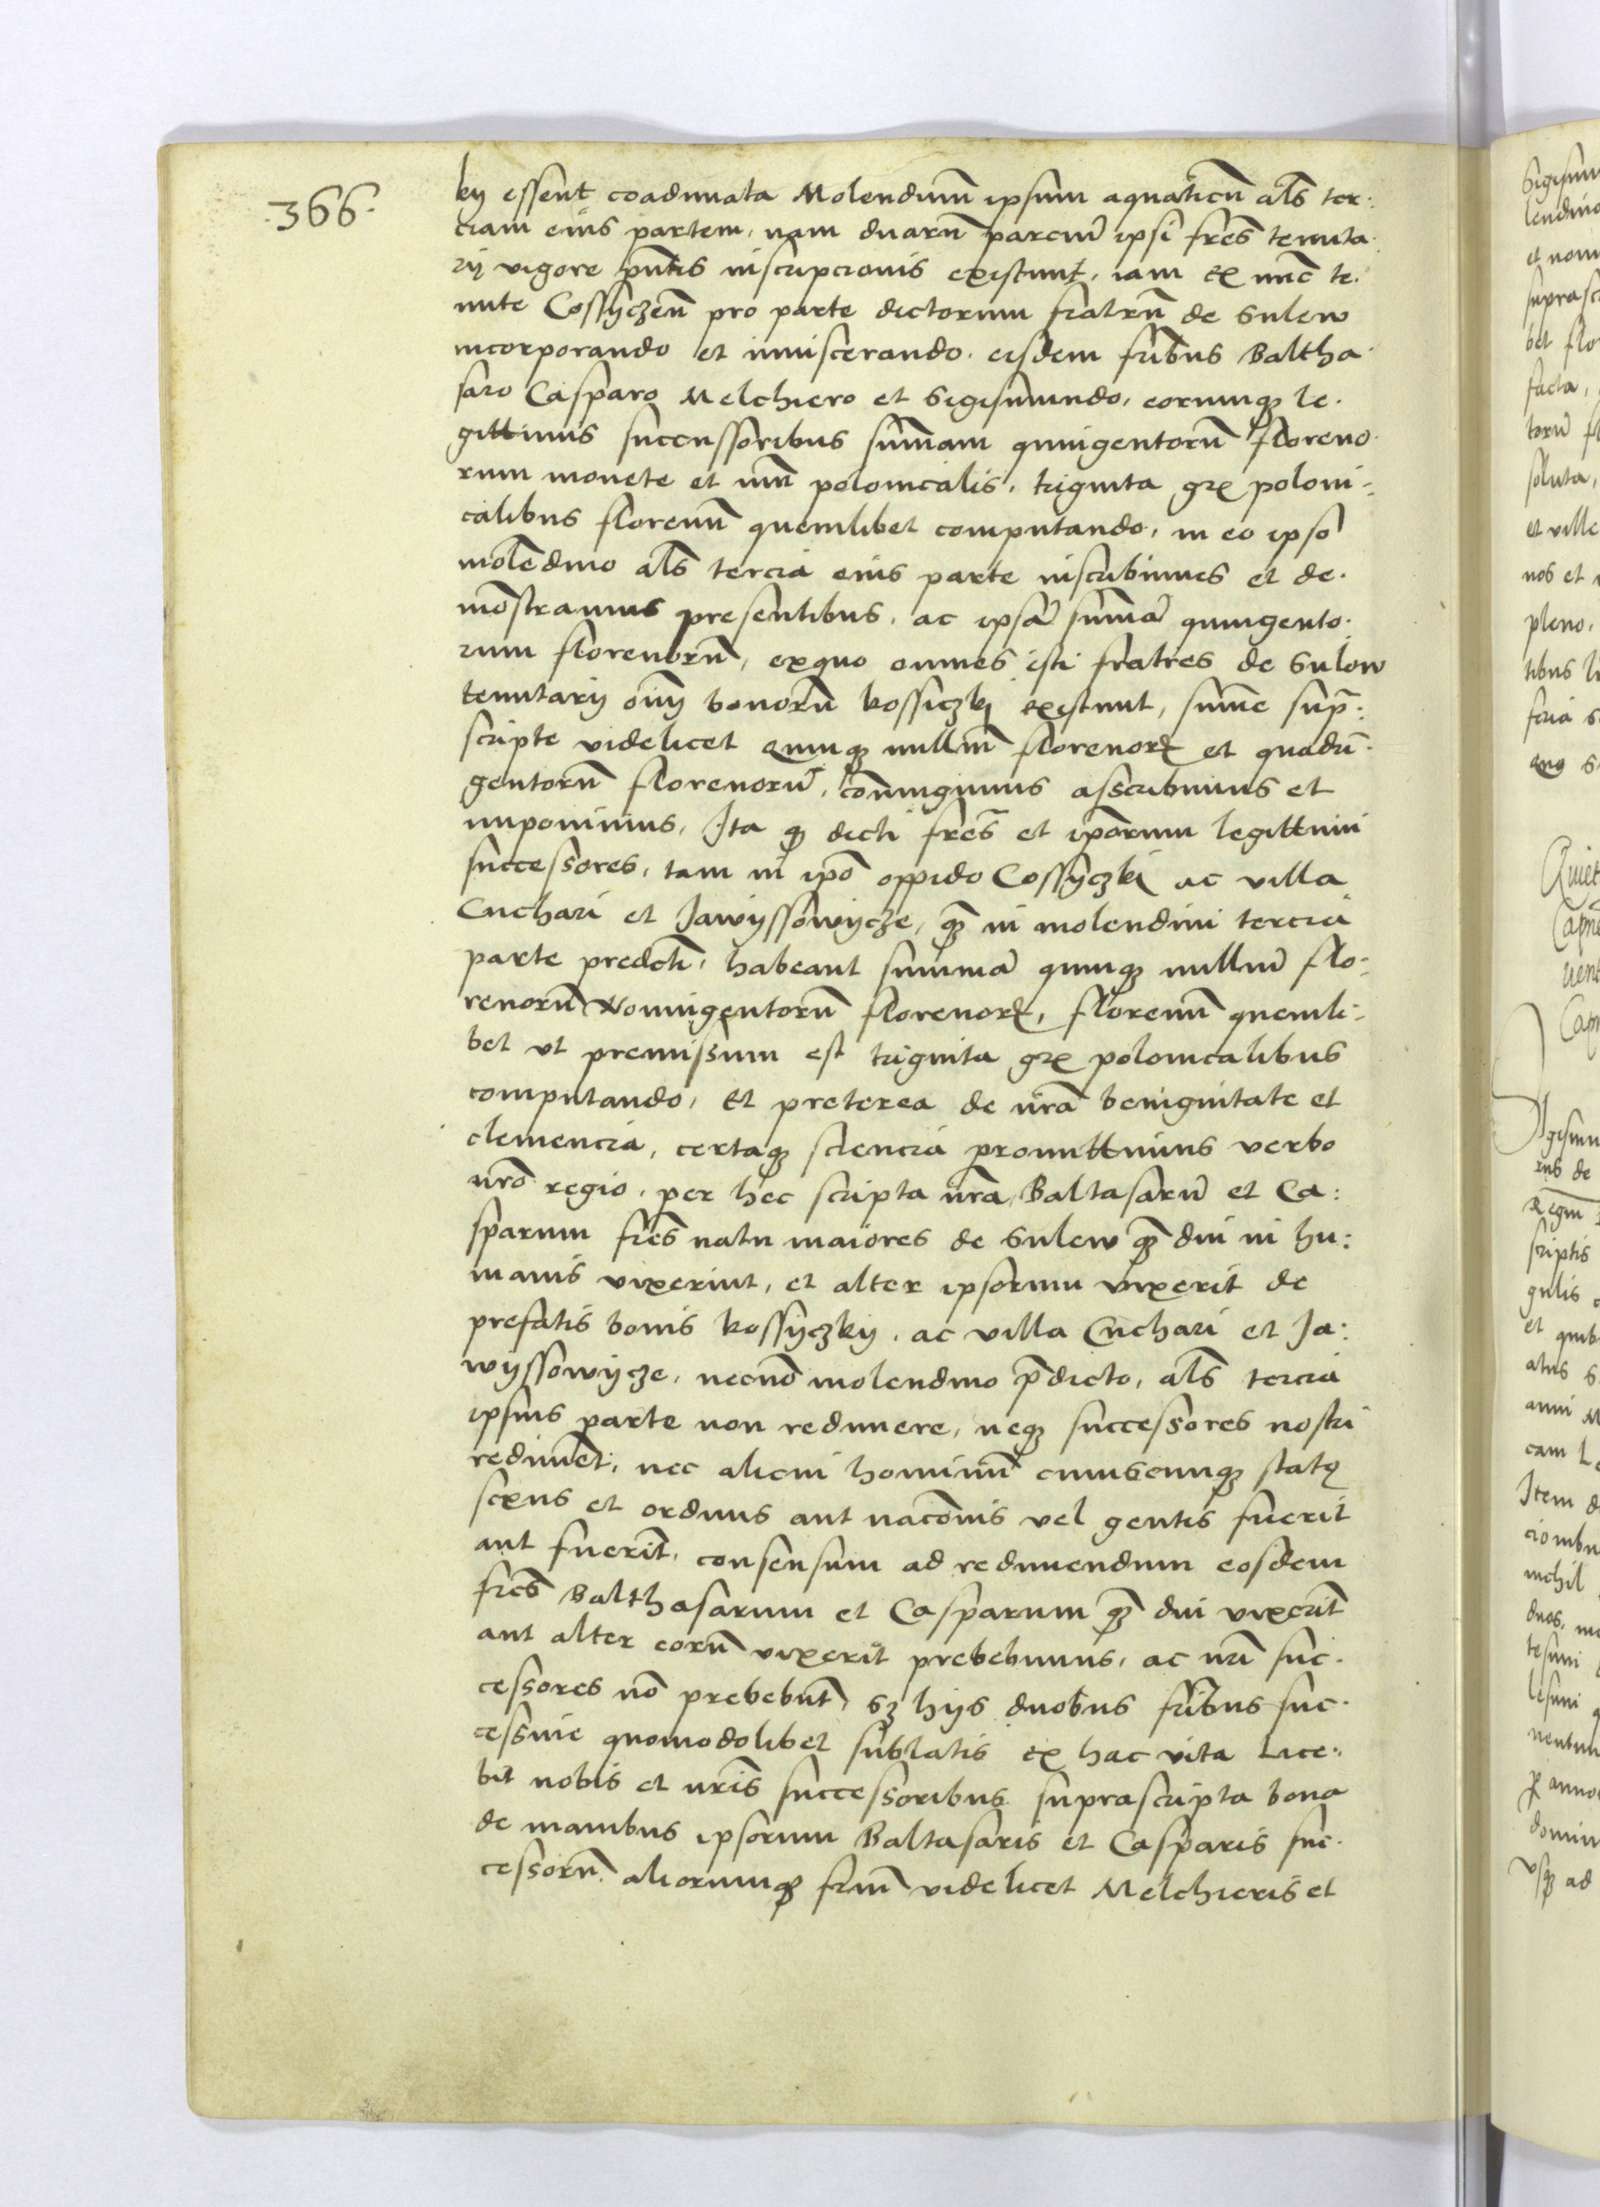 ·366·
kÿ essent coadunata Molendinū ipsum aquaticū al̄s ter:
ciam eius partem, nam duarū parciū ipsi fr̄es tenuta
rij vigore pn̄tis inscripcionis existunt, iam ex nūc te.
nute Cossÿczen̄ pro parte dictorum fratrū de Sulew
incorporando et inviscerando. eisdem fr̄ibus Baltha
saro Casparo Melchiero et Sigismundo, eorumqꝫ le.
gittimis successoribus sum̄am quingentorū floreno
rum monete et nūi polonicalis, triginta gr̄ꝭ poloni:
calibus florenū quemlibet computando, in eo ipso
mol̄edino al̄s tercia eius parte inscribimus et de.
mōstramus presentibus, ac ipsā sum̄ā quingento.
rum florenorū, exquo omnes isti fratres de Sulow
tenutarij om̄ı bonorū kossiczkj existunt, sum̄e sup̄:
scripte videlicet quinqꝫ milliū florenorꝝ et quadrī.
gentorū florenorū, cōiungimus asscribimus et
imponimus, Ita qꝫ dicti fr̄es et ip̄orum legittimi
successores, tam in ip̄o oppido Cossÿczkj ac villa
Cuchari et Jawÿssowÿcze, qꝫ̄ in molendini tercia
parte predcti, habeant summā quinqꝫ milliū flo:
renorū Nonnigentorū florenorꝝ, florenū quemli:
bet vt premissum est triginta gr̄ꝭ polonicalibus
computando, Et preterea de nr̄a benignitate et
clemencia, certaqꝫ sciencia promittimus verbo
nr̄o regio, per hec scripta nr̄a, Baltasarū et Ca:
sparum fr̄es natu maiores de Sulew qꝫ̄ diu in hu:
manis vixerint, et alter ipsorum vixerit de
prefatis bonis kossÿczkÿ, ac villa Cuchari et Ja:
wÿssowÿcze, necnō molendino p̄dicto, al̄s tercia
ipsius parte non redimere, neqꝫ successores nostri
redimēt, nec alicui hominū cuiuscunqꝫ statꝰ
sexus et ordinis aut nacōnis vel gentis fuerit
aut fuerīt, consensum ad redimendum eosdem
fr̄es Balthasarum et Casparum qꝫ̄ diu vixerīt
aut alter eorū vixerit prebebimus, ac nr̄i suc.
cessores nō prebebūt, sꝫ hijs duobus fr̄ibus suc.
cessiue quomodolibet sublatis ex hac vita Lice:
bit nobis et nr̄is successoribus suprascripta bona
de manibus ipsorum Baltasaris et Casparis suc.
cessorū aliorumqꝫ fr̄um videlicet Melchieris et